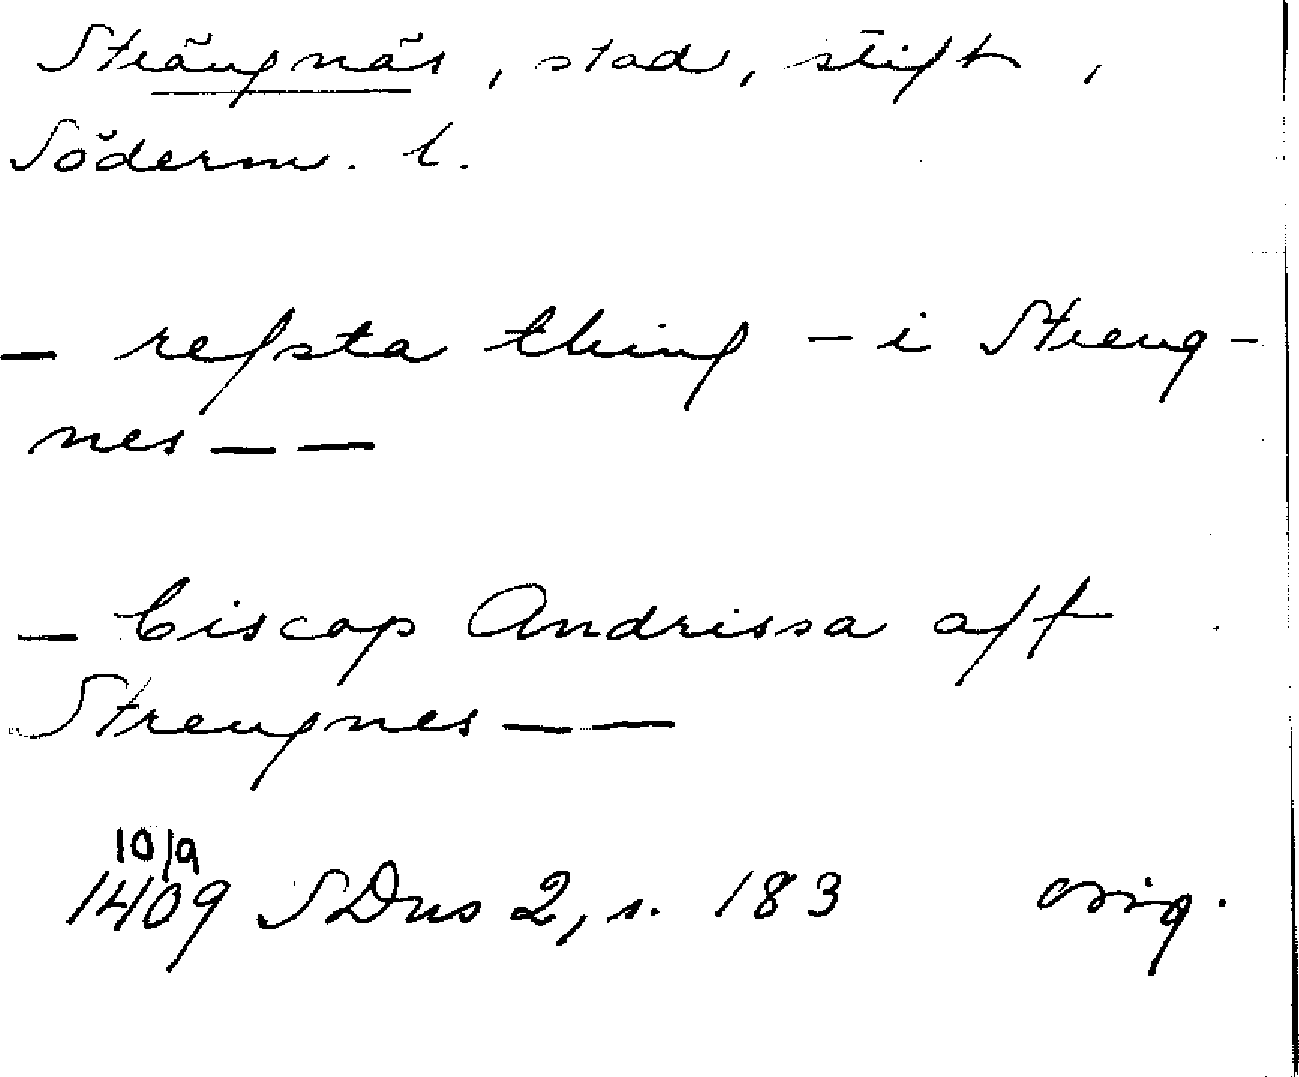 Strängnäs, stad, stift,
Söderm. l.
— refsta thing – i Streng-
nes — —
— biscop Andrissa aff
Strengnes — —
10/9
1409 SDns 2, s. 183 orig.